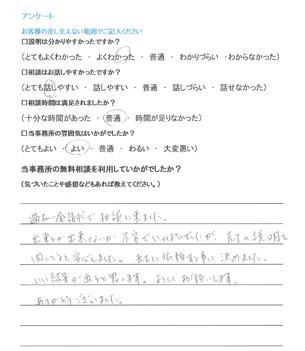 アンケート
お客様の差し支えない範囲でご記入ください
□説明は分かりやすかったですか?
(とてもよくわかった ・ よくわかった ・ 普通 ・ わかりづらい ・わからなかった)
□相談はお話しやすかったですか?
(とても話しやすい ・ 話しやすい ・ 普通 ・ 話しづらい ・ 話せなかった)
□相談時間は満足されましたか?
(十分な時間があった ・ 普通 ・ 時間が足りなかった)
□当事務所の雰囲気はいかがでしたか?
(とてもよい ・ よい ・ 普通 ・ わるい ・ 大変悪い)
当事務所の無料相談を利用していかがでしたか?
(気づいたことや感想などもあれば教えてください。)
過払い金請求で相談に来ました。
出来るか出来ないか不安でいっぱいでしたが、先生の説明を
聞いてると安心しました。先生に依頼する事に決めました。
いい結果が出ると思います。よろしくお願いします。
ありがとうございました。